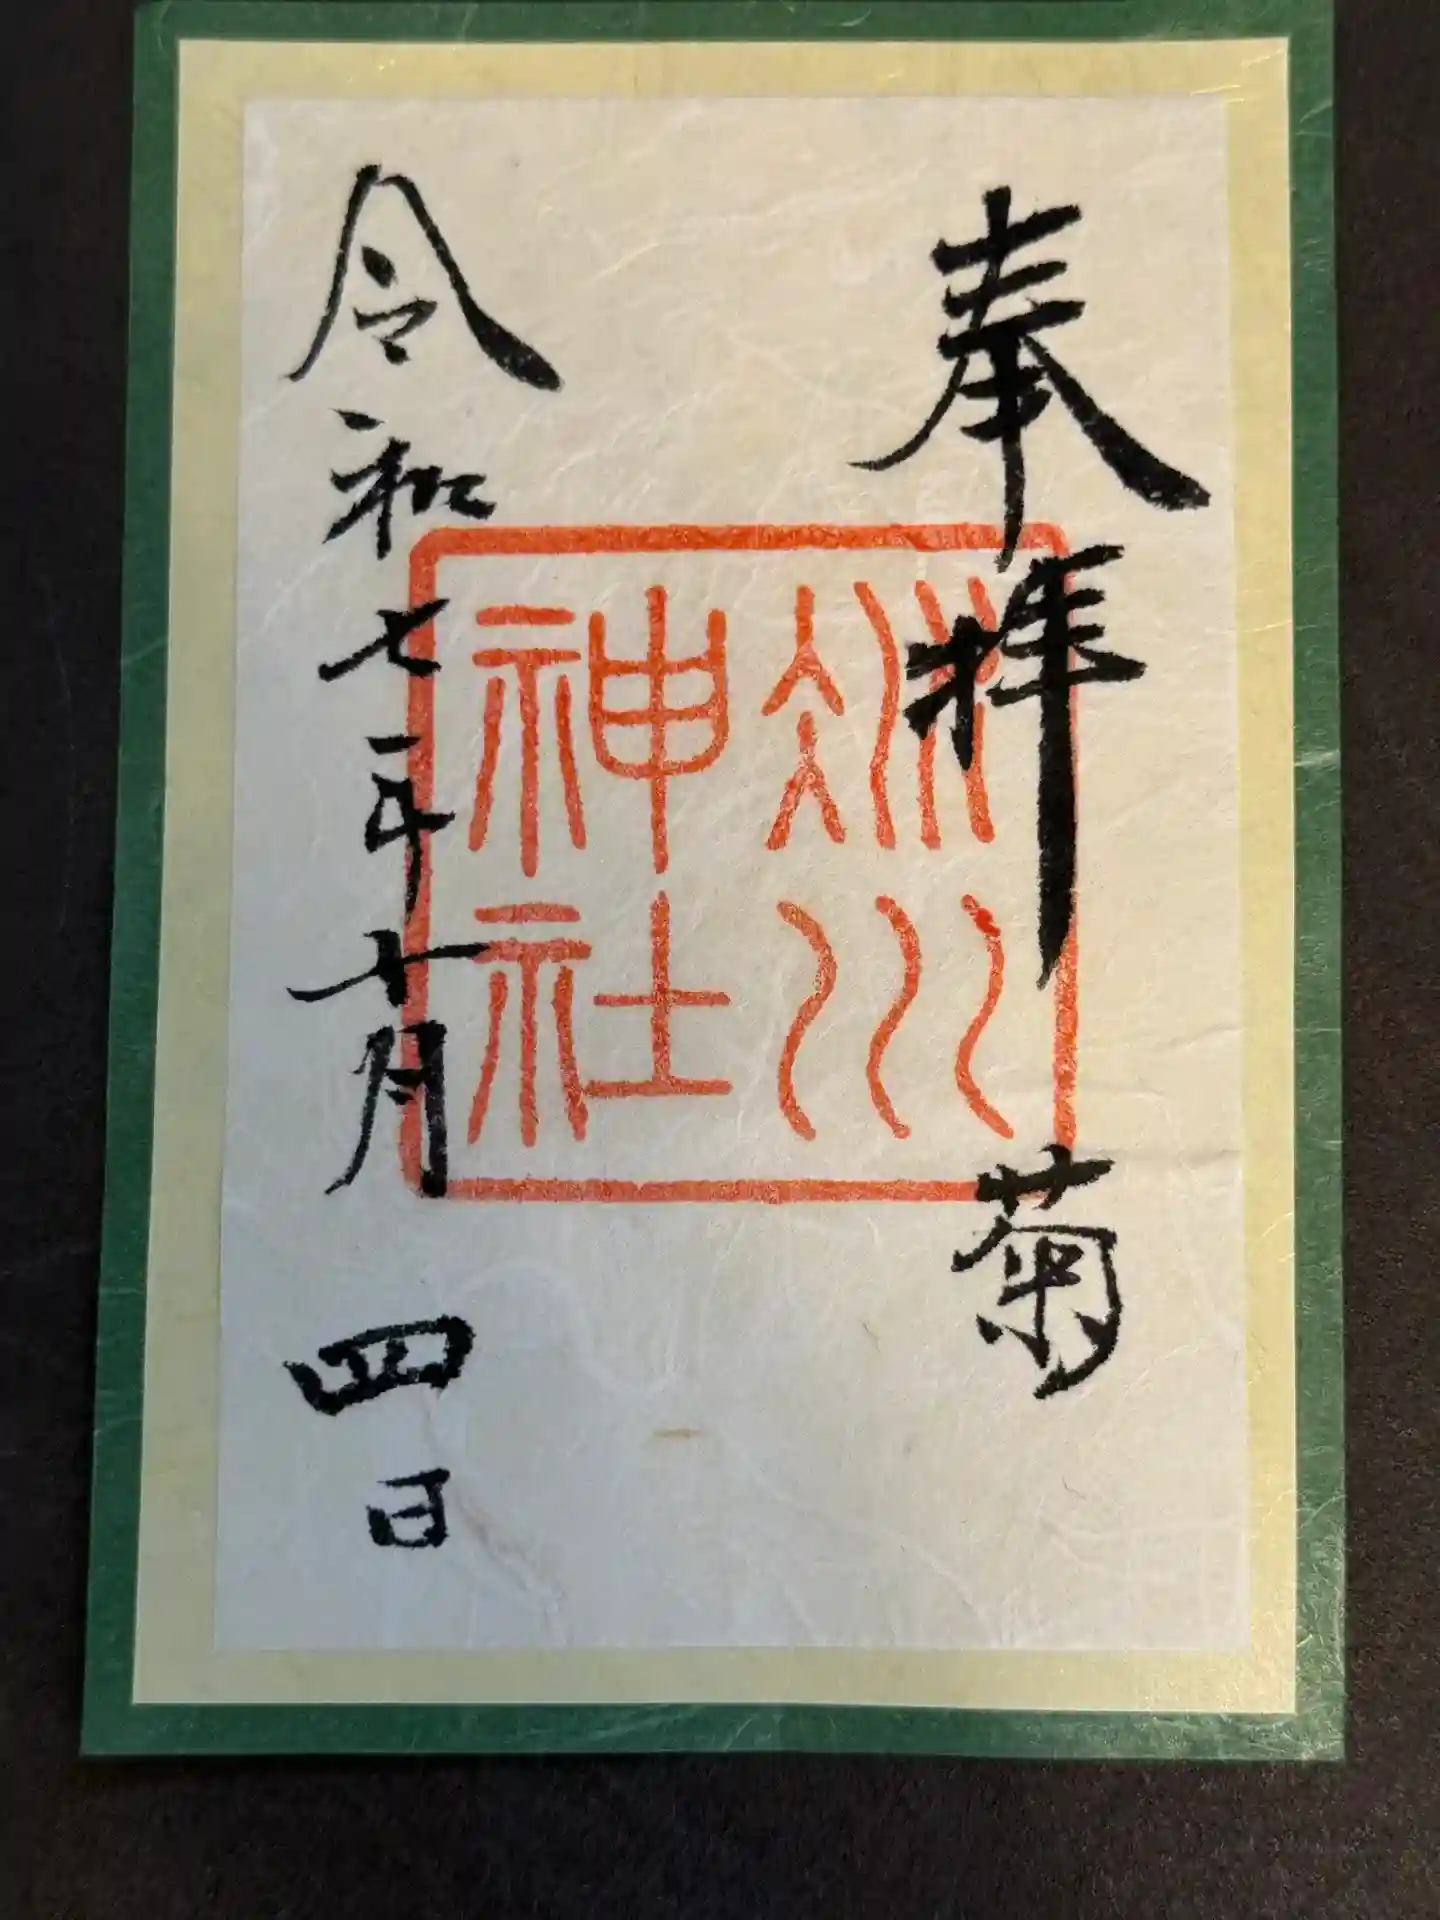 奉拝　菊
冰川
神社
令和七年十月四日